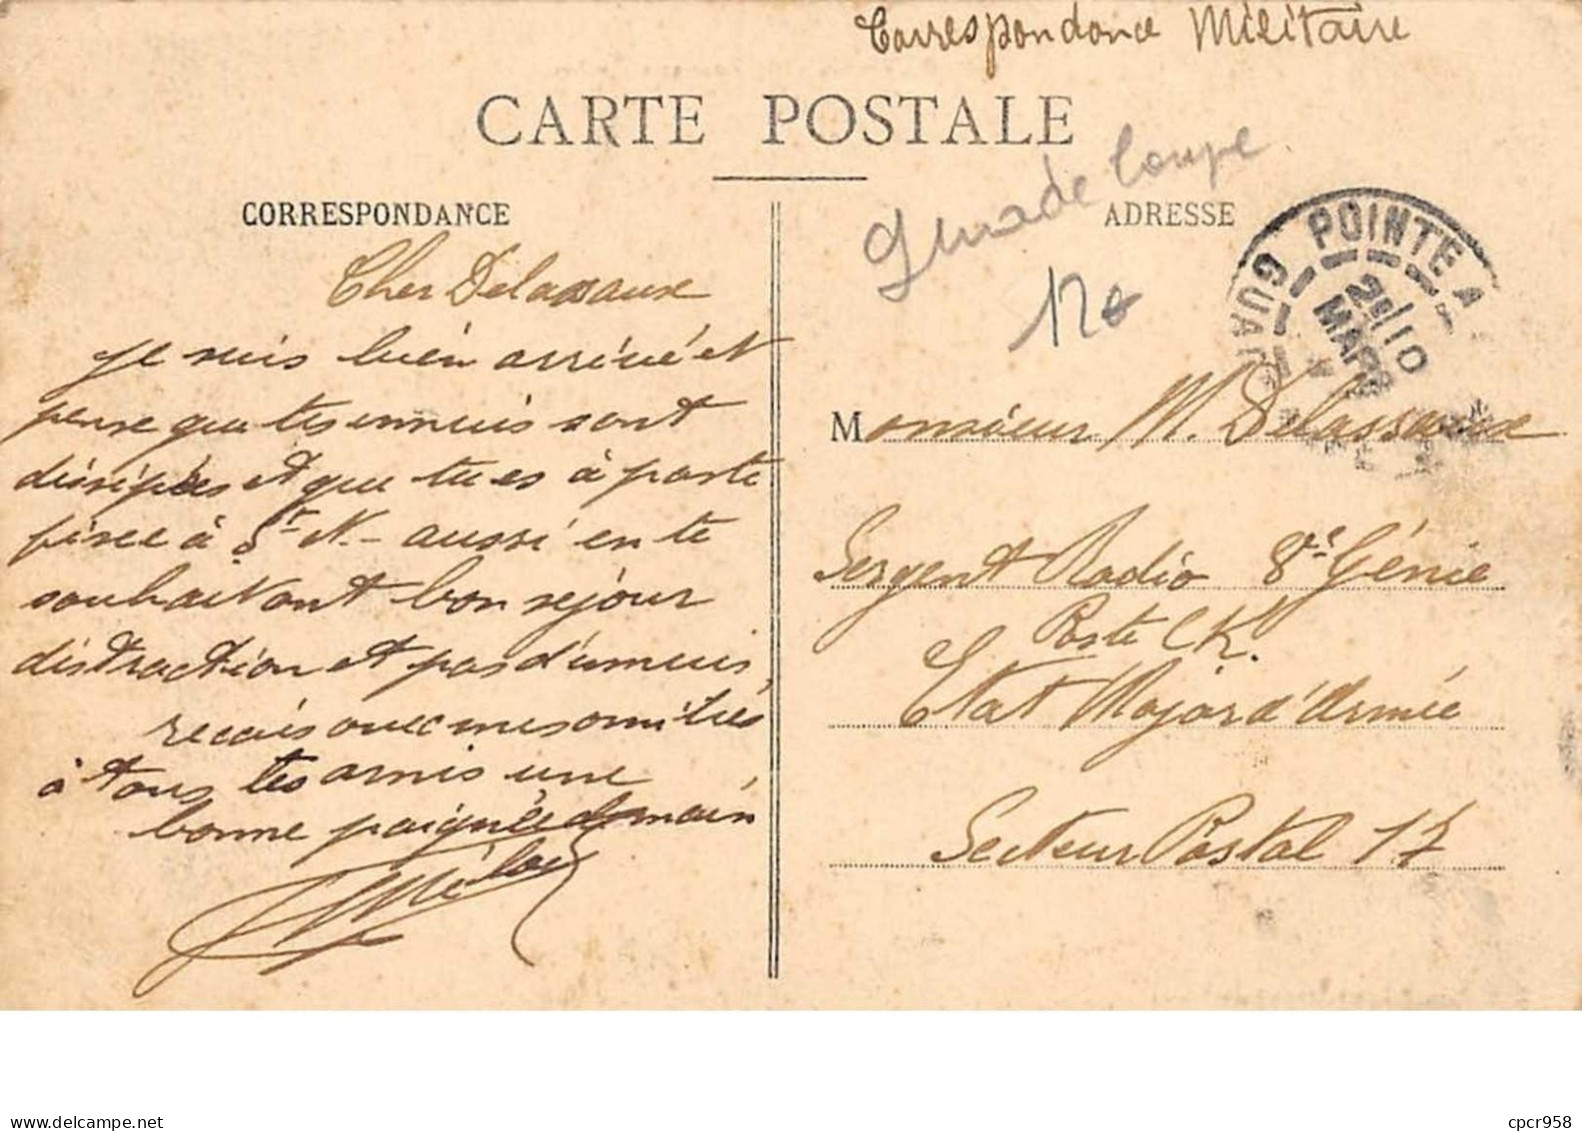 Correspondance Militaire
CARTE POSTALE
Guadeloupe
120
CORRESPONDANCE
ADRESSE
POINTE A
GUAD
MARS
Cher Delassaux
Je suis bien arrivé et
pense que tes ennuis sont
dissipées et que tu es à poste
fixee à St N. - aussi en te
souhaitant bon séjour
distraction et pas d'ennuis,
recois avec mes amitiés
à tous tes amis une
bonne poignée de main
Monsieur M. Delassaux
Sergent Radio 8e Génie
Poste CK.
Etat Major d'Armée
Secteur Postal 17
delcampe.net
cpcr958